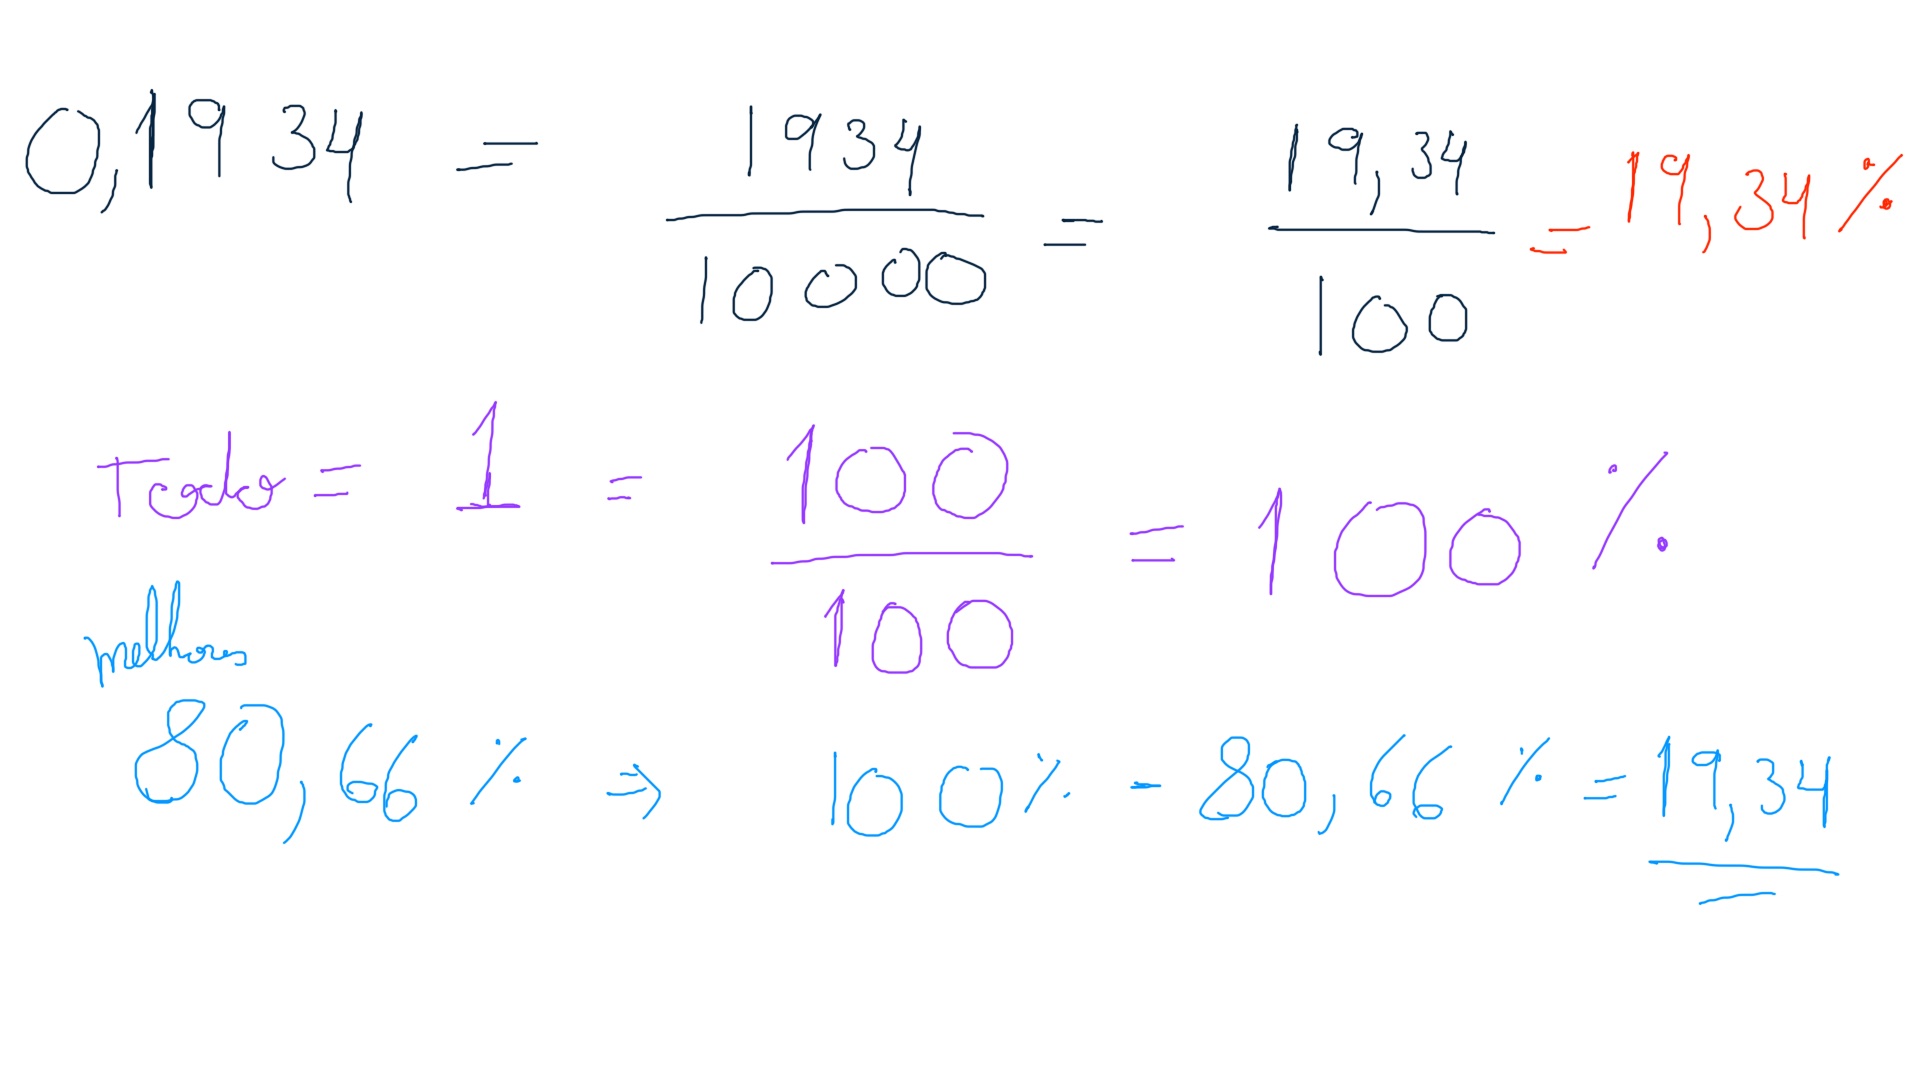 0,1934 = 1934/10000 = 19,34/100 = 19,34 %
Todo = 1 = 100/100 = 100 %
melhores
80,66 % ⇒ 100 % - 80,66 % = 19,34